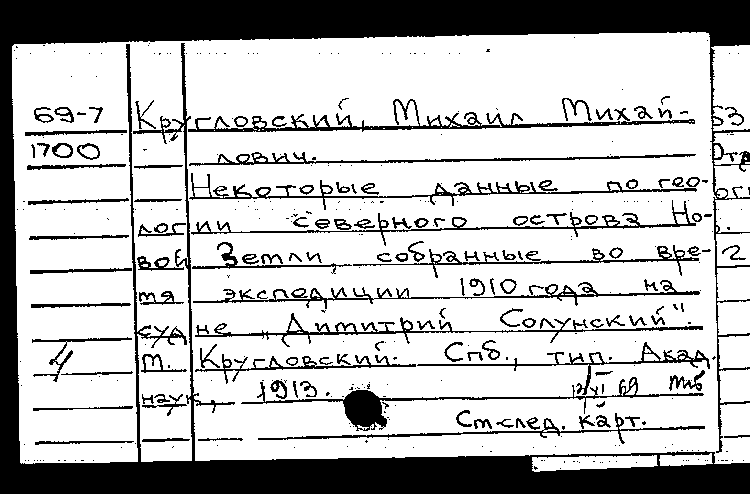 69-7 Кругловский, Михаил Михай-
1700 лович.
Некоторые данные по гео-
логии северного острова Но-
вой Земли, собранные во вре-
мя экспедиции 1910 года на
судне „Димитрий Солунский".
4 М. Кругловский. Спб., тип. Акад.
наук, 1913.
См-след. карт.
53
2